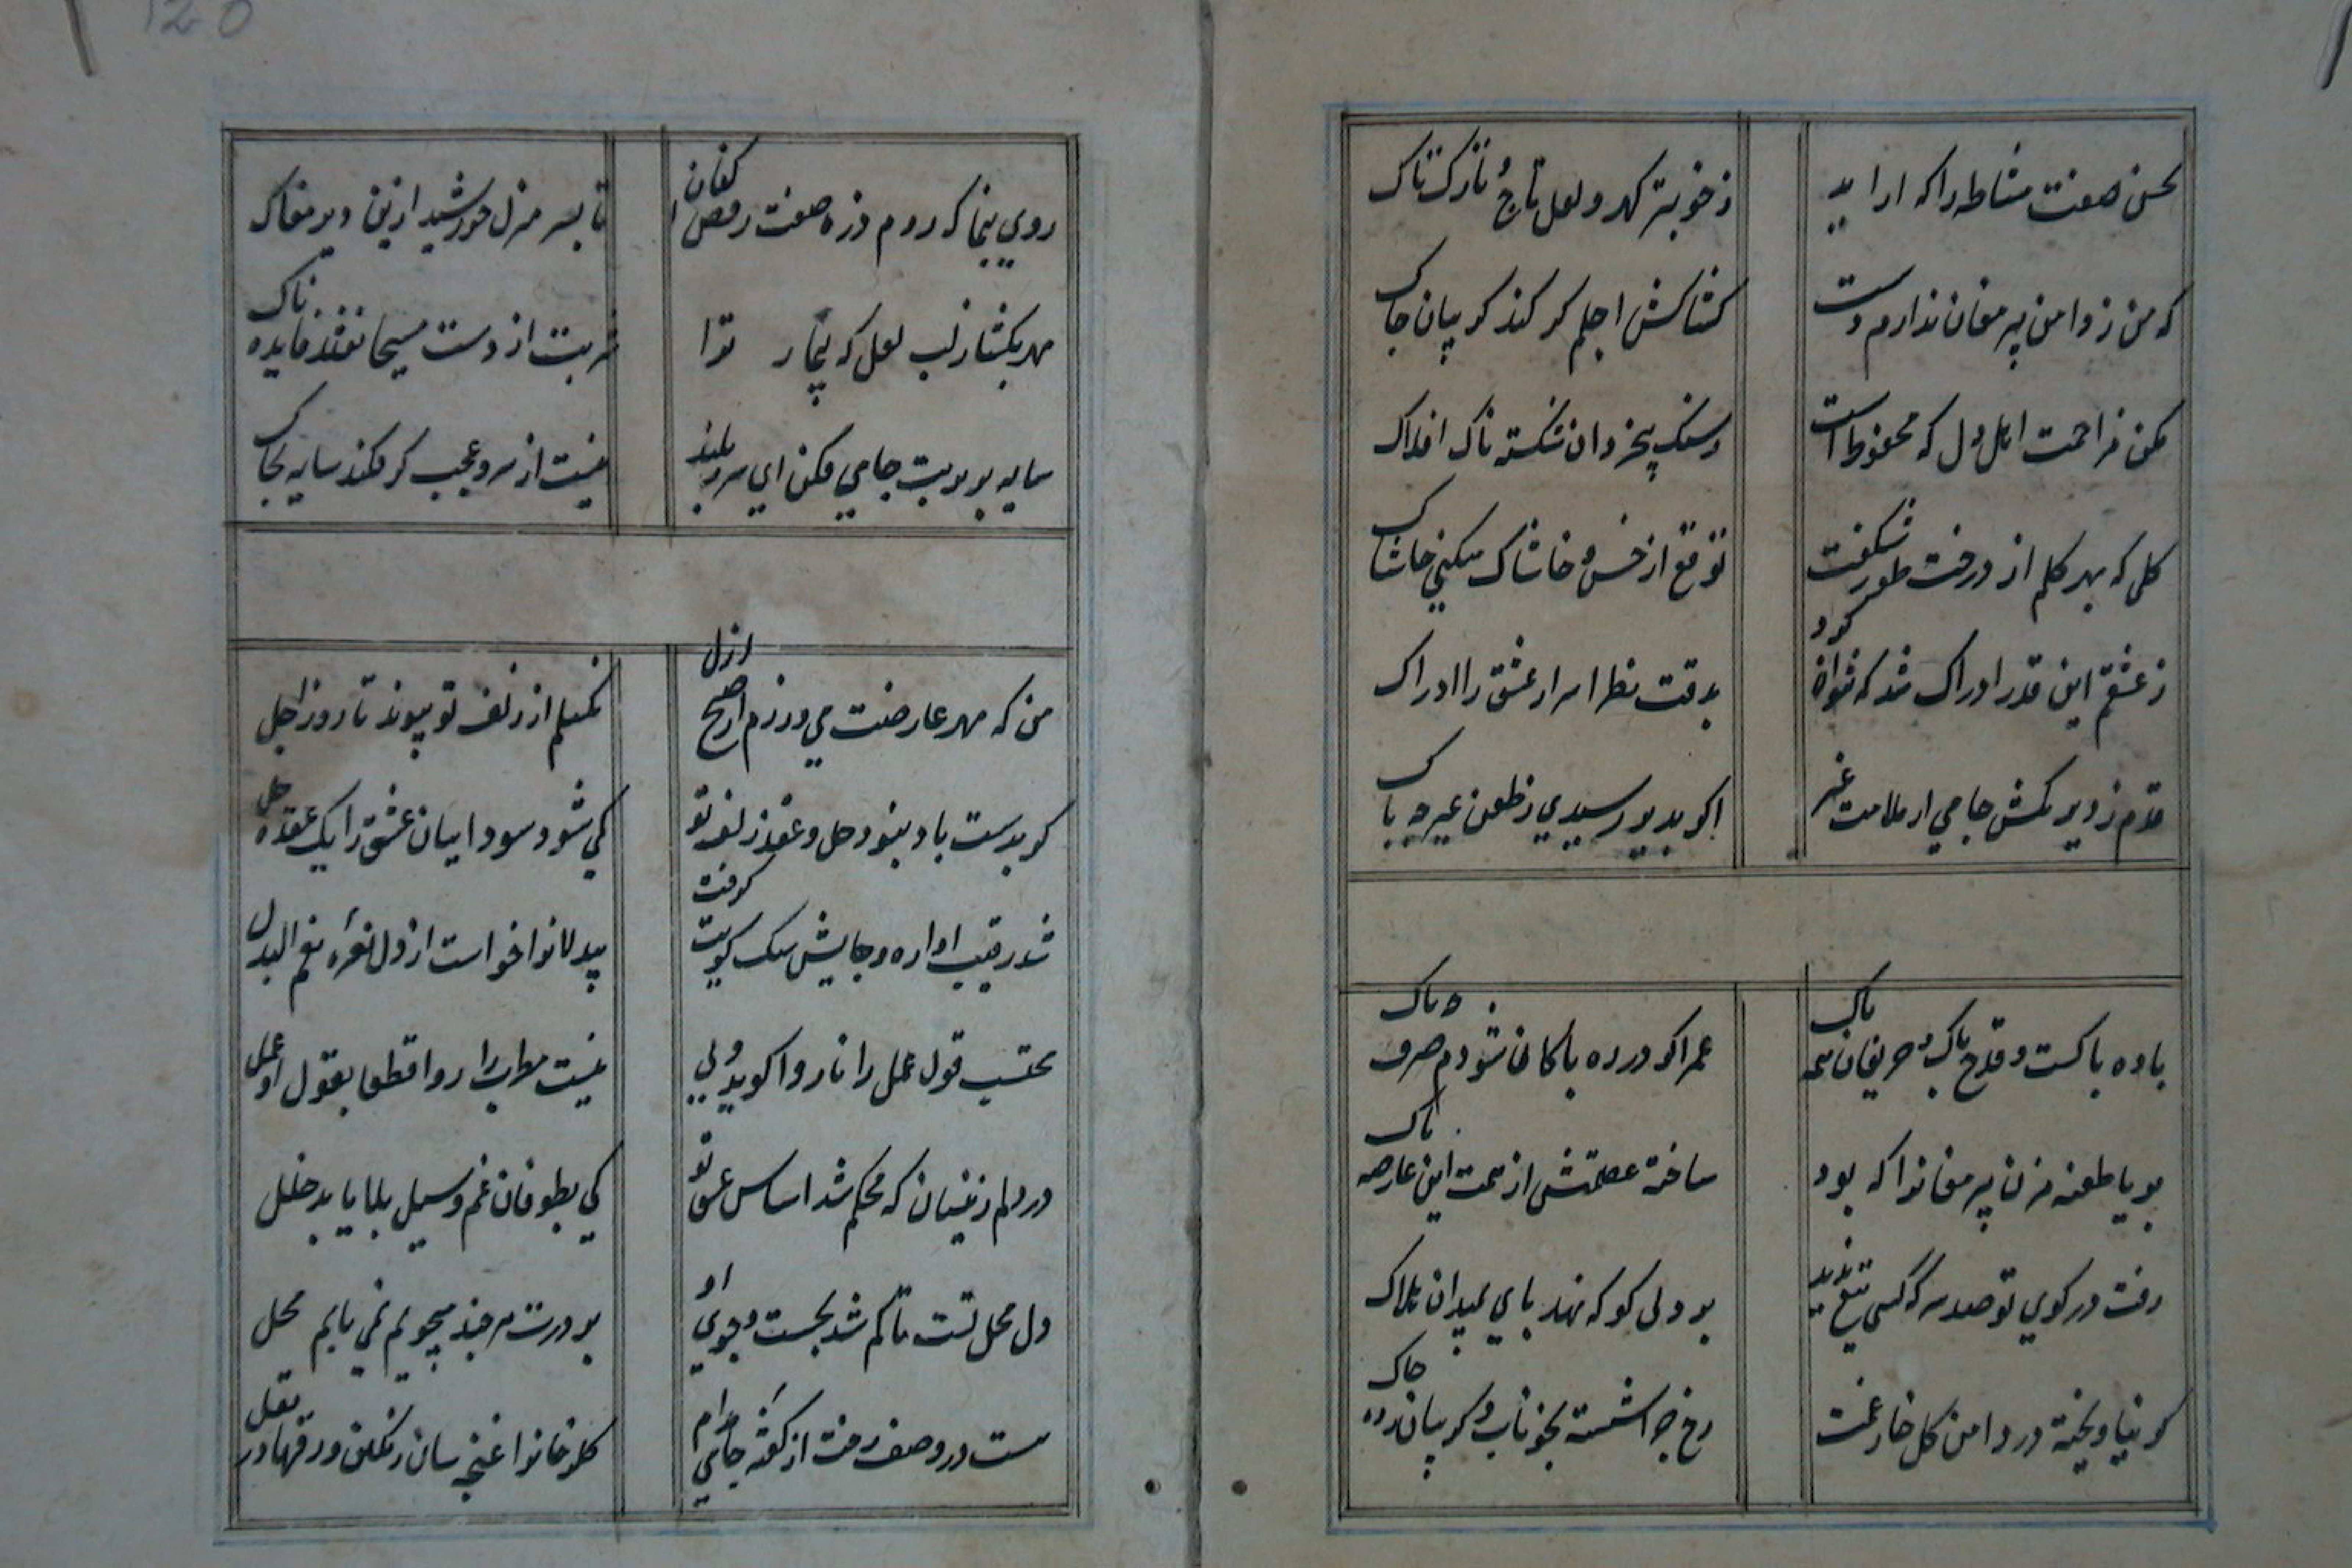 120
بحسن صنعت مشاطه را که اراید
ز خوبتر کهر و لعل تاج و تارک تاک
که من ز دامن پیر مغان ندارم دست
کشاکش اجلم کر کند کریبان جاک
مکن مزاحمت اهل دل که محفوظ است
ز سنک بیخردان شکسته تاک افلاک
کلی که بهر کلیم از درخت طور شکفت
توقع از خس و خاشاک میکنی حاشاک
ز عشقم این قدر ادراک شد که نتوان کرد
بدقت نظر اسرار عشق را ادراک
قدم ز دیر مکش جامی از ملامت غیر
اکر بدیر رسیدی ز طعن غیر چه باک
باده باکست و قدح باک و حریفان همه باک
عمر اکر در ره باکان شودم صرف چه باک
بر یا طعنه مزن پیر مغانرا که بود
ساخته عصمتش از تهمت این عارضه باک
رفت در کوی تو صد سر که کسی تیغ ندید
بر دلی کو که نهد بای بمیدان هلاک
کر نیاویخته در دامن کل خار غمت
رخ چرا شسته بخوناب و کریبان زده جاک
روی بنما که روم ذره صفت رقص کنان
تا بسر منزل خورشید ازین دیر مغاک
مهر بکشا ز لب لعل که بیمار ترا
شربت از دست مسیحا نفتد فایده ناک
سایه بر تربت جامی فکن ای سرو بلند
نیست از سرو عجب کر فکند سایه بخاک
من که مهر عارضت می ورزم از صبح ازل
نکسلم از زلف تو پیوند تا روز اجل
کر بدست باد نبود حل و عقد زلف تو
کی شود سوداییان عشق را یک عقده حل
شد رقیب اواره و جایش سک کویت کرفت
بیدلانرا خواست از دل نعره نعم البدل
محتسب قول عمل را ناروا کوید ولی
نیست مطرب را روا قطعا بقول او عمل
در دلم زینسان که محکم شد اساس عشق تو
کی بطوفان غم و سیل بلا یابد خلل
دل محل تست تا کم شد بجست و جوی او
بر درت هر چند میجویم نمی یابم محل
هست در وصف رخت از کفته جامی مدام
کلرخانرا غنچه سان رنکین ورقها در بغل